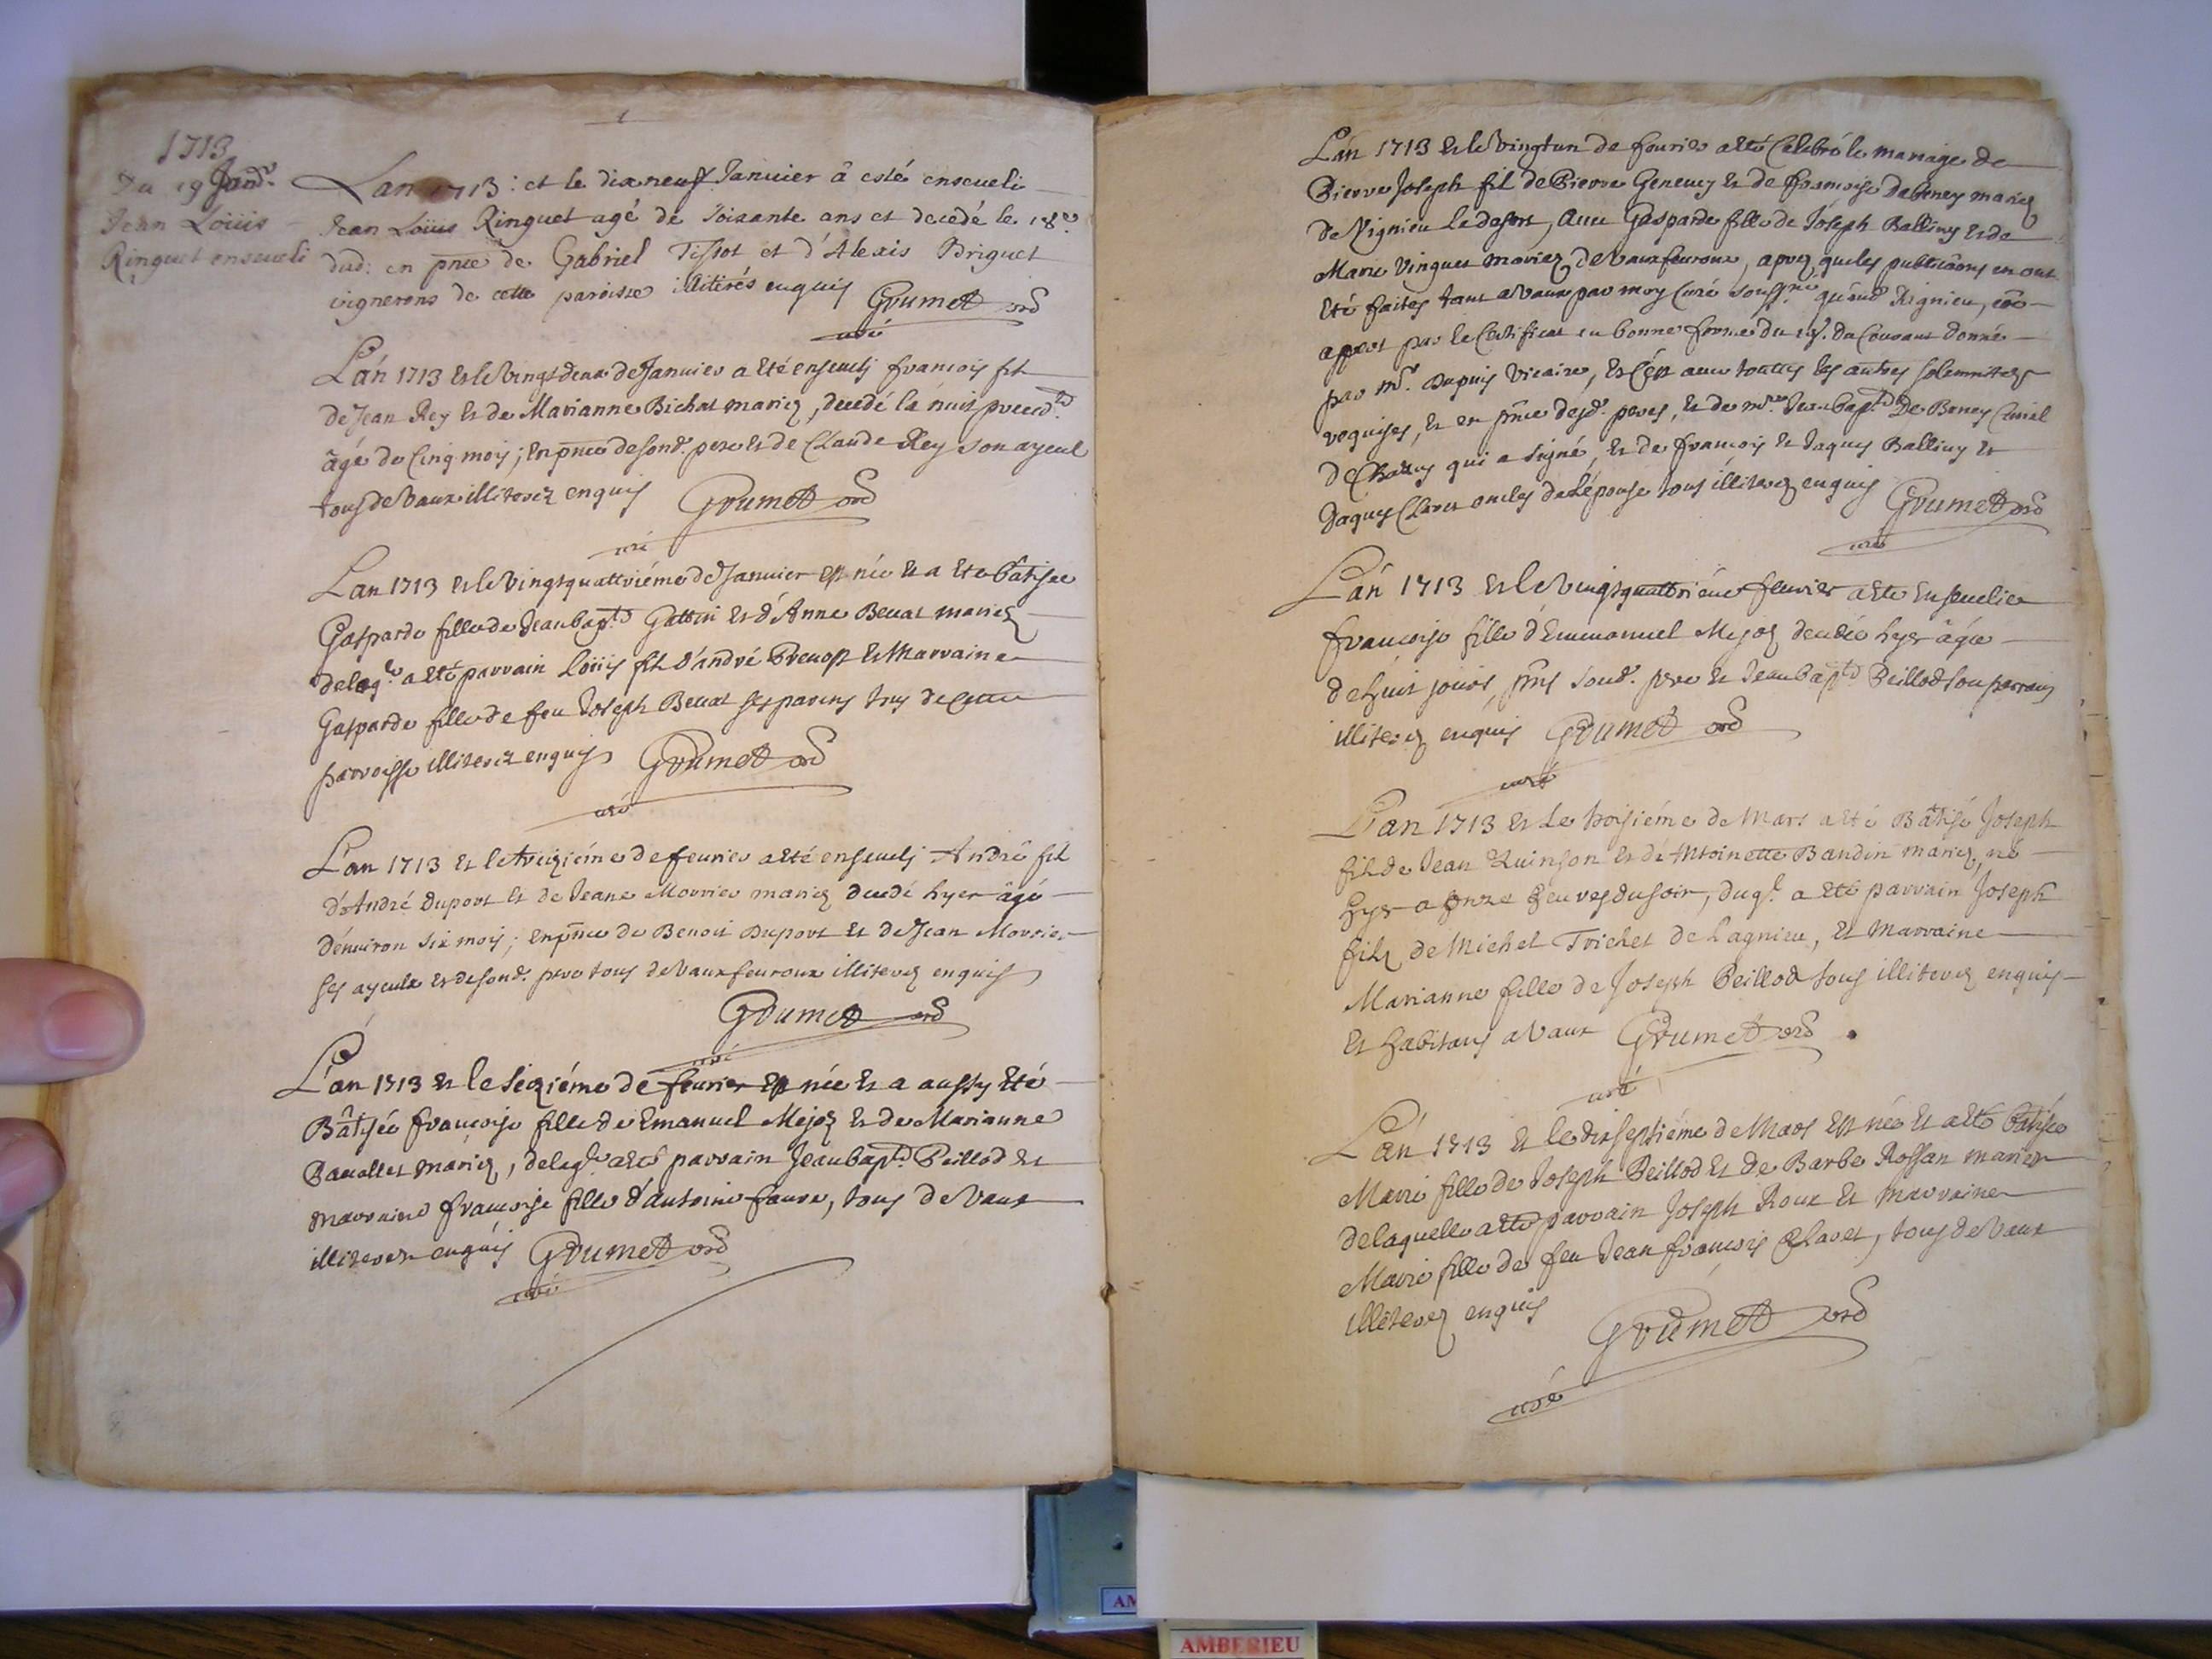 1713
Du 19 Janv.
Jean Loüis
Ringuet enseueli
Lan 1713: et le dixneuf Januier à esté enseueli
Jean Loüis Ringuet agé de soixante ans et decedé le 18e
dud: en pnce de Gabriel Tissot et d'Alexis Briguet
vignerons de cette paroisse illiterés enquis Grumet
curé
L'an 1713 et le vingtdeux de Januier a eté enseuely françois fil
de Jean Rey et de Marianne Bichat mariez, decedé la nuit preced.te
âgé de cinq mois; en pnce de sond. pere et de Claude Rey son ayeul
tous de Vaux illiterez enquis Grumet
curé
L'an 1713 et le vingtquattriéme de Januier est née et a eté bâtisée
Gasparde fille de Jeanbap.te Gattin et d'Anne Beuat mariez
delaq.le a eté parrain loüis fil d'andré Preuost et Marraine
Gasparde fille de feu Joseph Beuat ses parens tous de cette
parroisse illiterez enquis Grumet
curé
L'an 1713 et le treiziéme de feurier a eté enseuely André fil
d'André Duport et de Jeane Mourier mariez decedé hyer âgé
d'enuiron six mois; en pnce de Benoit Duport et de Jean Mourier
ses ayeulx et de sond. pere tous de Vauxfeuroux illiterez enquis
Grumet
curé
L'an 1713 et le seiziéme de feurier est née et a aussy eté
Bâtisée françoise fille de Emanuel Mejoz et de Marianne
Bauallet mariez, delaq.le a eté parrain Jeanbap.te Peillod et
marraine françoise fille d'antoine faure, tous de Vaux
illiterez enquis Grumet
curé
L'an 1713 et le vingtun de feurier a eté Celebré le mariage de
Pierre Joseph fil de Pierre Geneuey et de françoise Debeney mariez
de Rignieu le desert, auec Gasparde fille de Joseph Balliuy et de
Marie Vinguet mariez de Vauxfeuroux, aprez que les publicãons en ont
eté faites tant a Vaux par moy Curé soussné qu'aud. Rignieu, cõe
appert par le Certificat en bonne forme du 19. du Courant donné
par mr. Dupuis Vicaire, et c'est auec touttes les autres solemnitez
requises, et en pnce desd. peres, et de mre Jeanbap.te De Beney
qui a signé, et de françois et Jaques Balliuy et
Jaques Claret oncles de l'épouse tous illiterez enquis Grumet
curé
L'an 1713 et le vingtquattriéme feurier a eté enseuelie
françoise fille d'Emmanuel Mejoz decedée hyer âgée
de huit jours, pñs sond. pere et Jeanbap.te Peillod son parrain
illiterez enquis Grumet
curé
L'an 1713 et le troisiéme de Mars a eté Bâtisé Joseph
fil de Jean Quinson et de Antoinette Baudin mariez, né
hyer a onze heures du soir, duq.l a eté parrain Joseph
filz de Michel Trichet de Lagnieu, et Marraine
Marianne fille de Joseph Peillod tous illiterez enquis
et habitans a Vaux Grumet
curé
L'an 1713 et le dixseptiéme de Mars est née et a eté Bâtisée
Marie fille de Joseph Peillod et de Barbe Rossan mariez
delaquelle a eté parrain Joseph Roux et marraine
Marie fille de feu Jean françois Claret, tous de Vaux
illiterez enquis
Grumet
curé
AMBERIEU